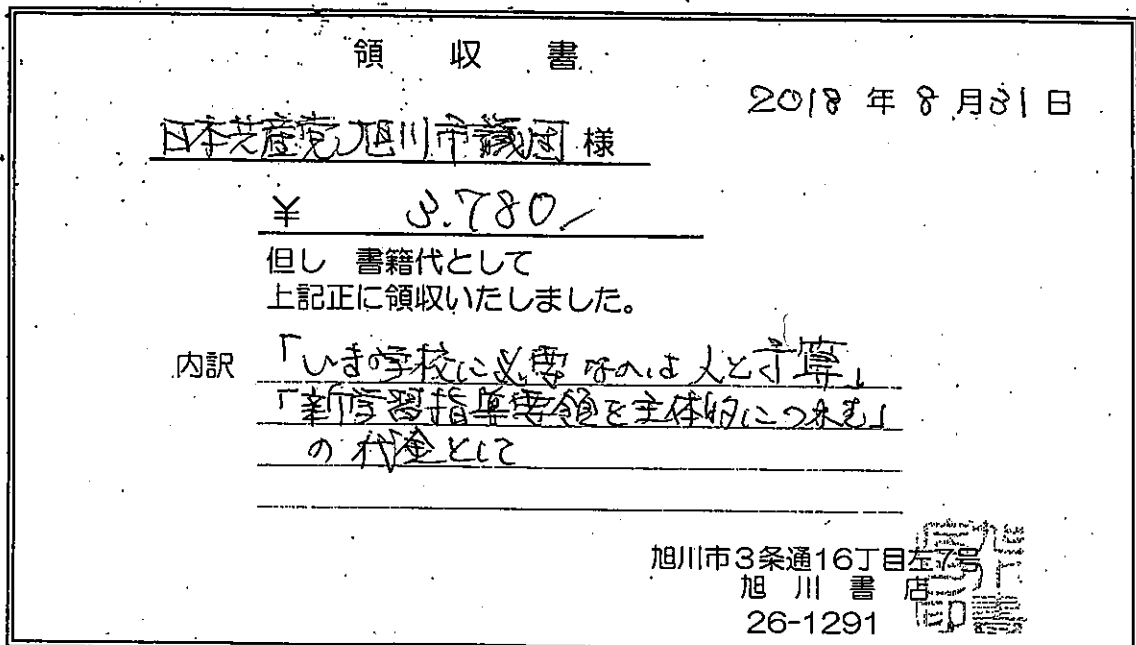 領収書
2018年8月31日
日本共産党旭川市議団様
¥ 3.780/
但し 書籍代として
上記正に領収いたしました。
内訳 「いま学校に必要なのは人と予算」
「新学習指導要領を主体的につかむ」
の代金として
旭川市3条通16丁目左7号
旭川書店
26-1291